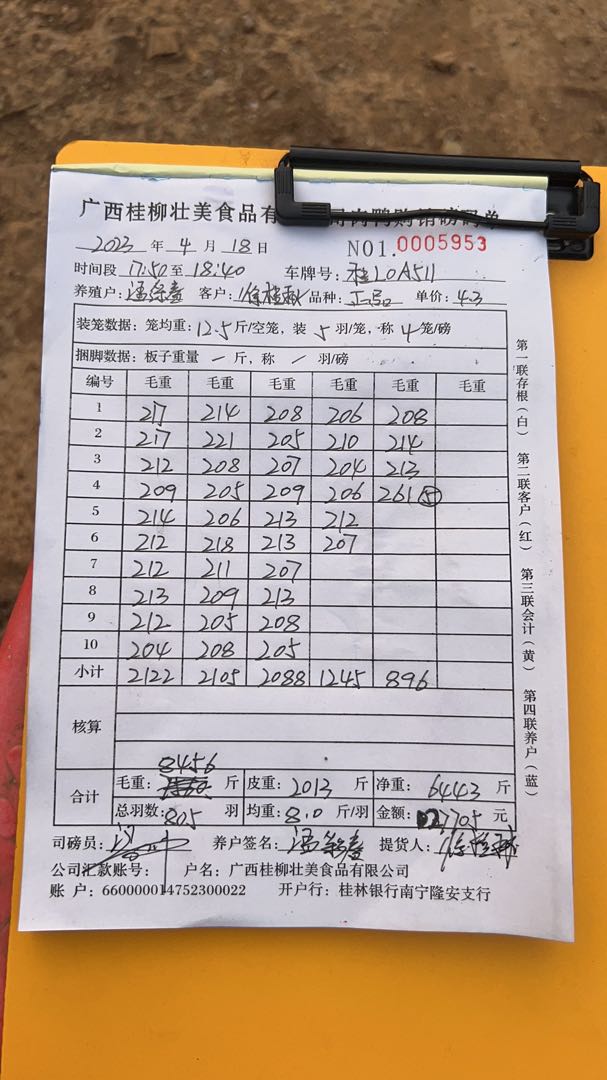 广西桂柳壮美食品有
2023 年 4 月 18 日 NO1.0005953
时间段 17:50 至 18:40 车牌号: 桂10A511
养殖户: 客户: 品种: 正品 单价: 4.3
装笼数据: 笼均重: 12.5 斤/空笼, 装 5 羽/笼, 称 4 笼/磅
捆脚数据: 板子重量 一 斤, 称 / 羽/磅
编号 毛重 毛重 毛重 毛重 毛重 毛重
1 217 214 208 206 208
2 217 221 205 210 214
3 212 208 207 204 213
4 209 205 209 206 261 ⑤
5 214 206 213 212
6 212 218 213 207
7 212 211 207
8 213 209 213
9 212 205 208
10 204 208 205
小计 2122 2105 2088 1245 896
核算
8456
合计 毛重: 斤 皮重: 2013 斤 净重: 6443 斤
总羽数: 805 羽 均重: 8.0 斤/羽 金额: 27705 元
司磅员: 养户签名: 提货人:
公司汇款账号: 户名: 广西桂柳壮美食品有限公司
账 户: 660000014752300022 开户行: 桂林银行南宁隆安支行
第一联存根(白) 第二联客户(红) 第三联会计(黄) 第四联养户(蓝)